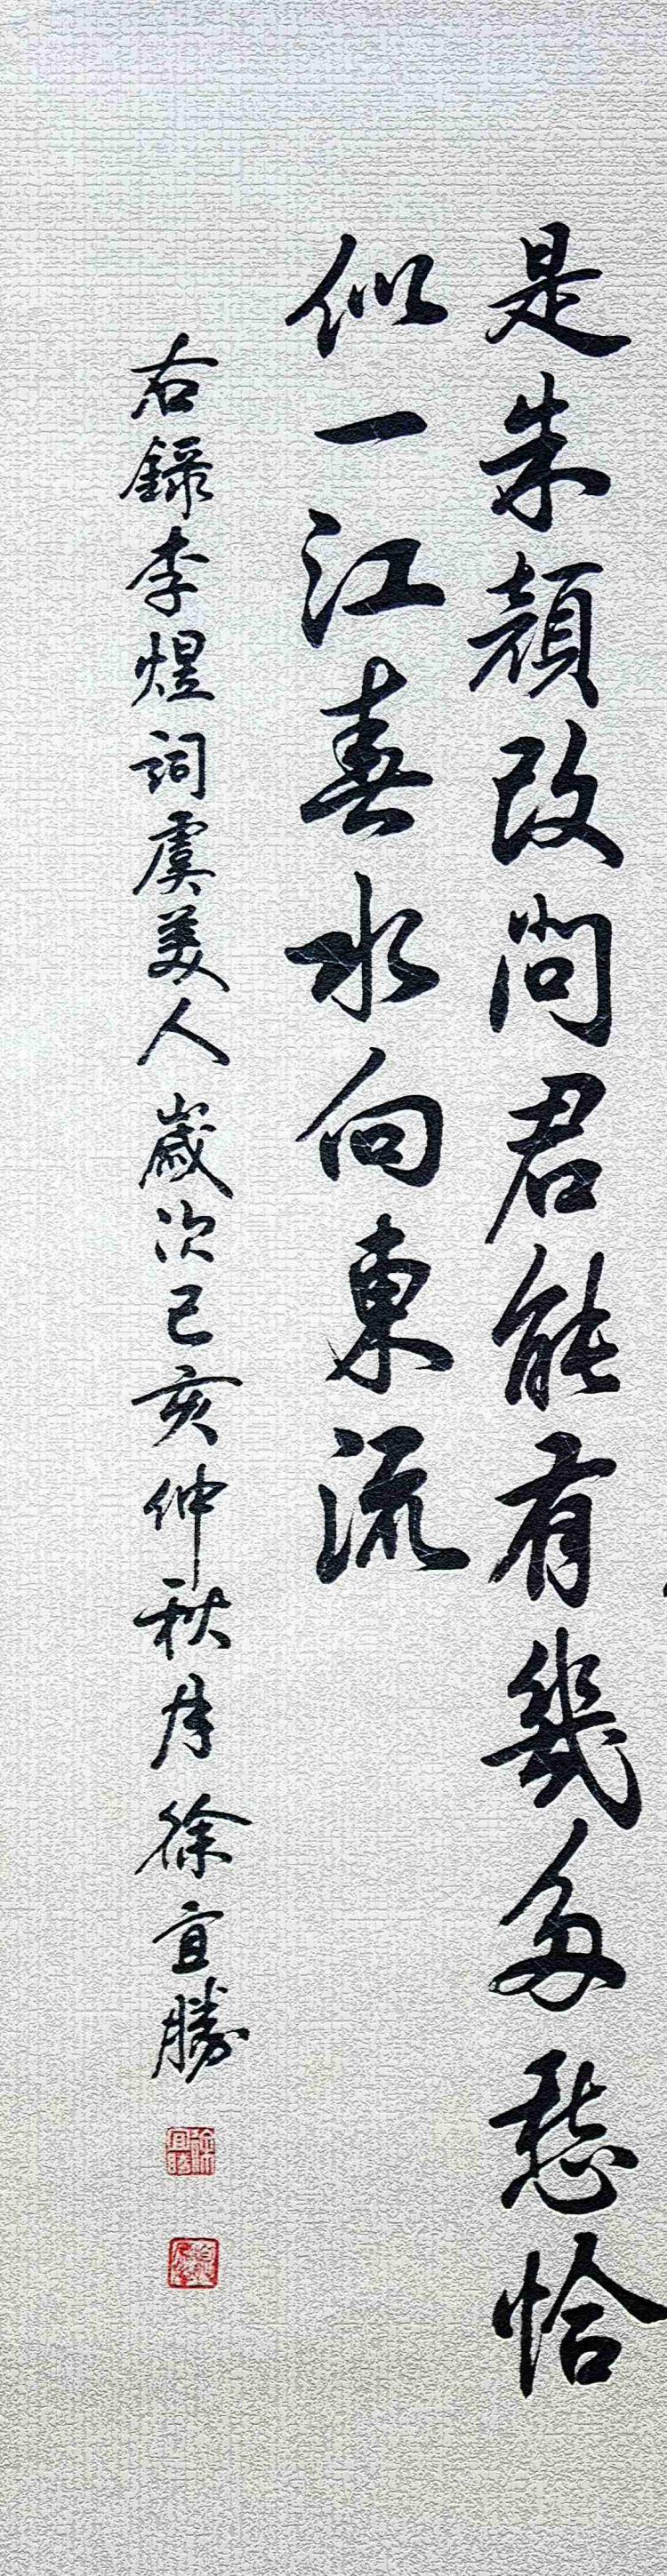 是朱顔改問君能有幾多愁恰
似一江春水向東流
右錄李煜詞虞美人歲次己亥仲秋月徐宜勝